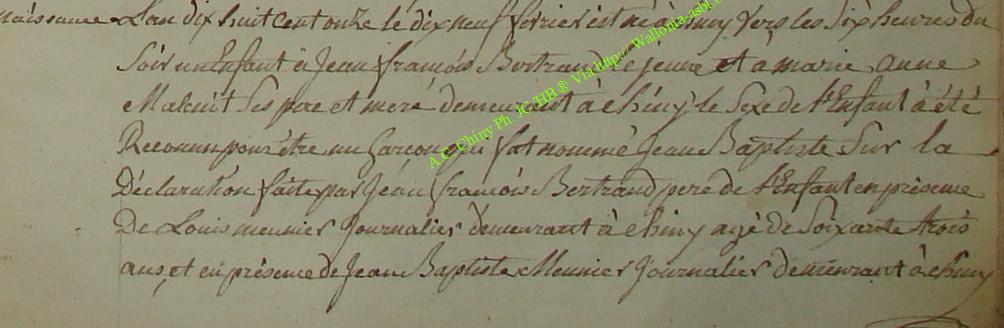 naissance L'an dix huit cent onze le dix neuf fevrier est né à chiny vers les six heures du
Soir un Enfant à Jean françois Bertrand le jeune et à marie anne
Ses pere et meré demeurant à chiny le Sexe de l'Enfant à été
Reconnu pour être un garçon qui fut nommé Jean Baptiste Sur la
Déclaration faite par Jean françois Bertrand pere de l'Enfant en présence
De Louis meunier Journalier demeurant à chiny agé de Soixante trois
ans, et en présence de Jean Baptiste Meunier Journalier demeurant à chiny
A.C. Chiny Ph. JC/HB ® Via http://Wallonia-asbl.